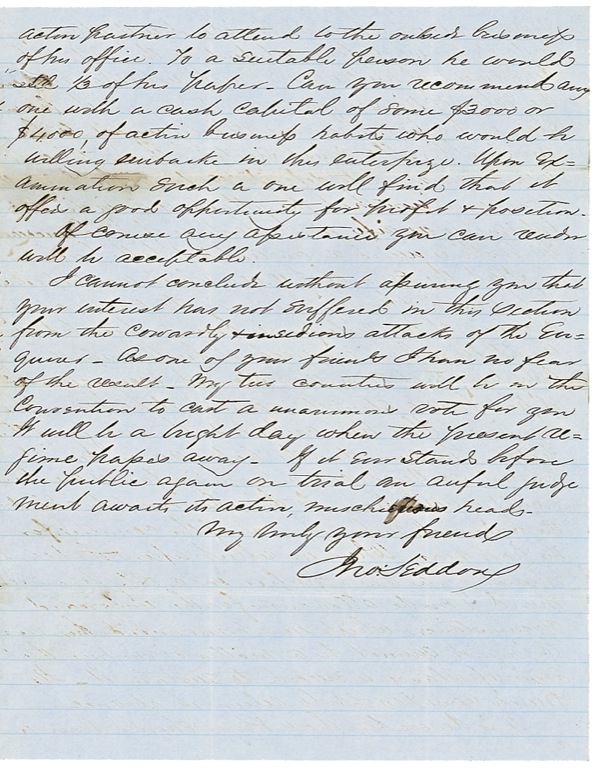 active partner to attend to the outside business
of his office. To a suitable person he would
sell 1/3 of his paper - Can you recommend any
one with a cash capital of some $3000 or
$4000, of active business habits who would be
willing embarke in this enterprize. Upon ex=
amination such a one will find that it
offers a good opportunity for profit & position.
Of course any assistance you can render
will be acceptable.
I cannot conclude without assuring you that
your interest has not suffered in this section
from the cowardly & insedious attacks of the En=
quirer - As one of your friends I have no fear
of the result - My two counties will be in the
Convention to cast a unanimous vote for you
It will be a bright day when the present re=
gime passes away - If it ever stands before
the public again on trial an awful judge
ment awaits its active, mischievous heads -
Very truly your friend
Jno Seddon